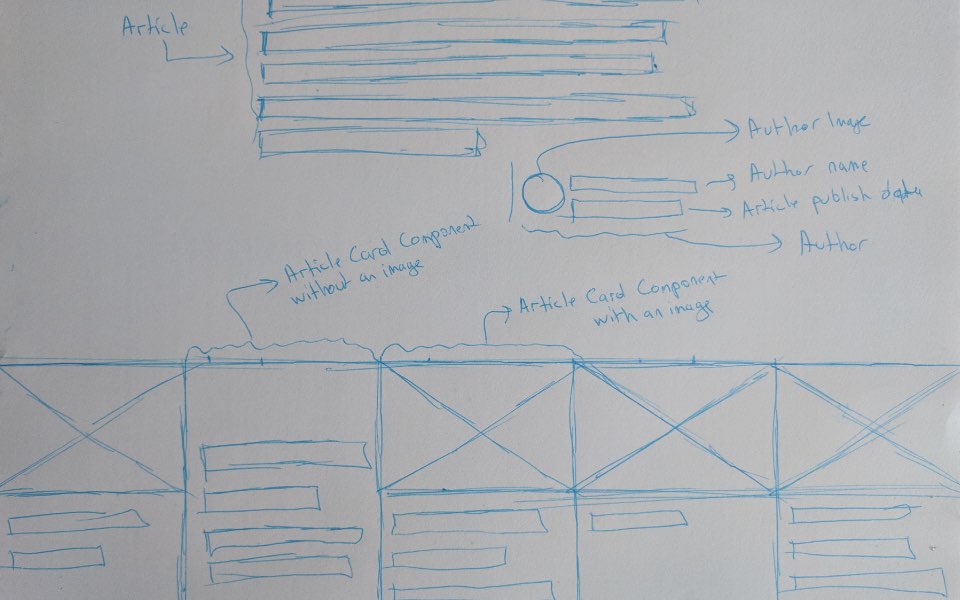 Article
Author Image
Author name
Article publish data
Author
Article Card Component
without an image
Article Card Component
with an image